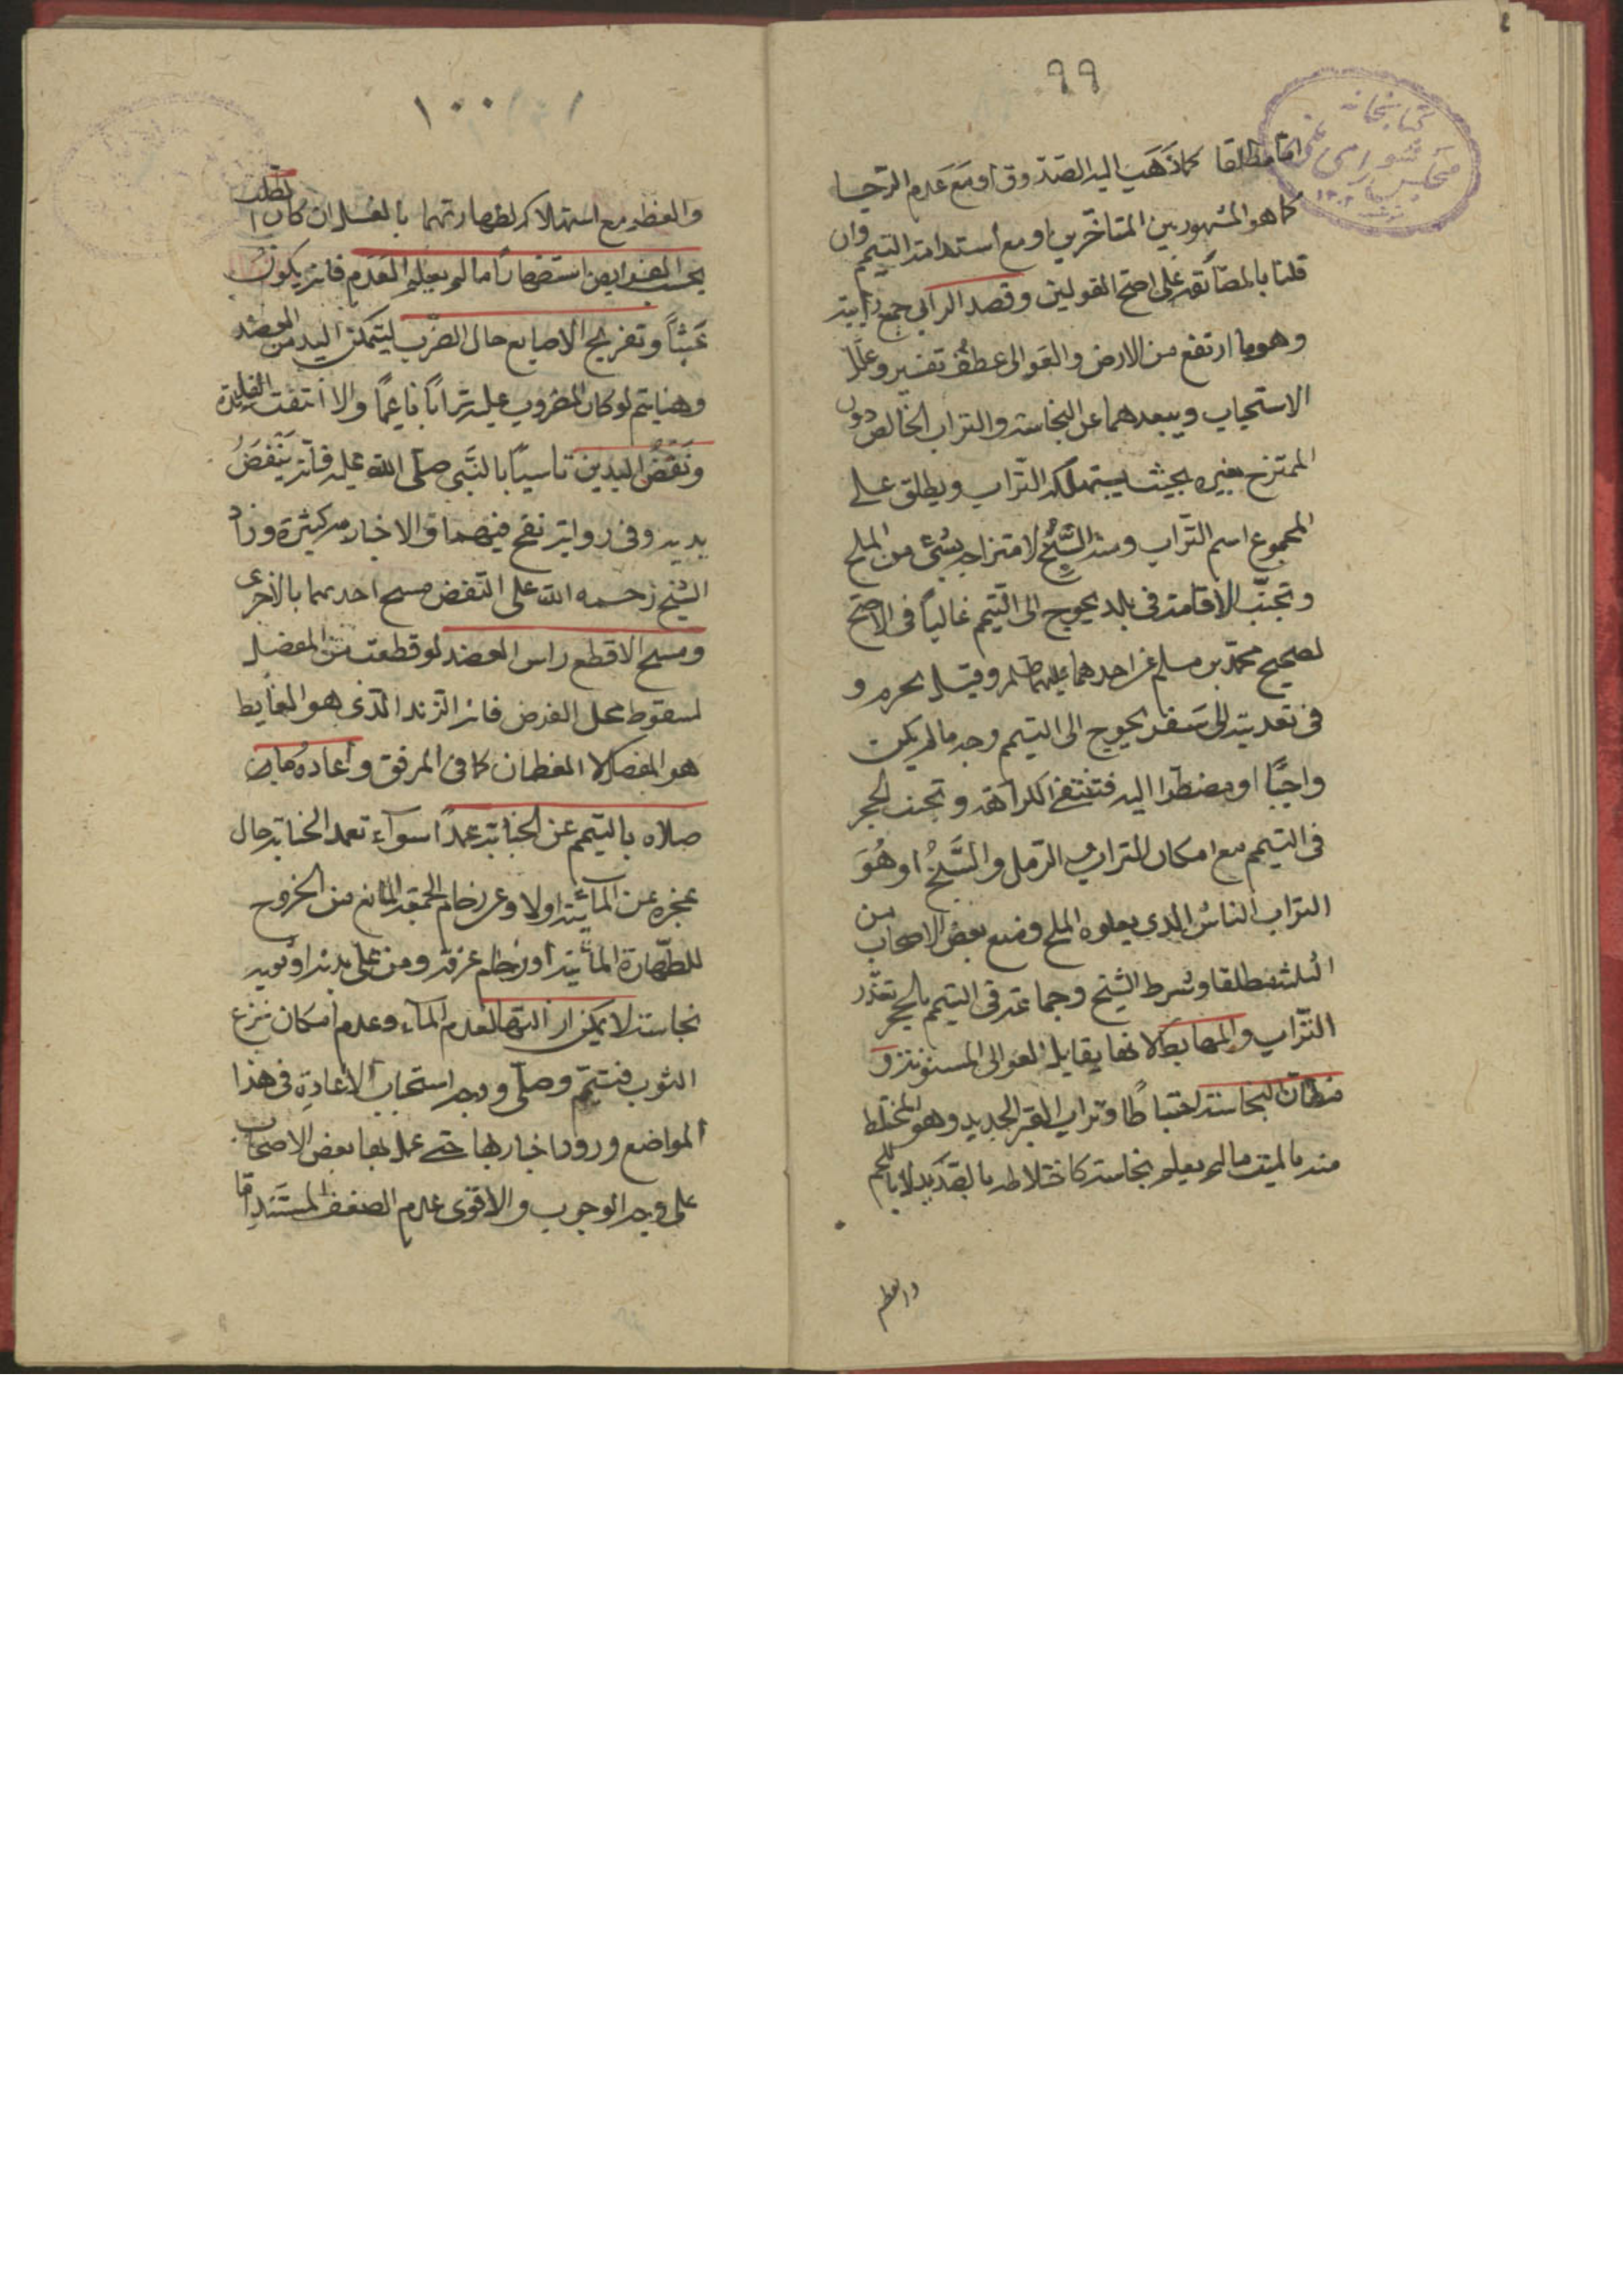 ٩٩
كتابخانه
مجلس شورای ملی
امّا مطلقا كما ذَهَب اليه الصدوق او مَع عَدم الرّجا
كما هو المشهور بين المتاخّرين او مع استدامة التيمم وان
قلنا بالمضائقة على اصحّ القولين وقصد الرابى جمع رابية
وهو ما ارتفع من الارض والعَوالى عطفُ تفسير وعلّل
الاستحباب ببعدهما عن النجاسة والتراب الخالص دون
الممتزج بغيره بحيث يستهلكه التّراب ويطلق على
المجموع اسم التّراب ومنه السَّبخُ لامتزاجه بشئ من الملح
وتجنّب الاقامة فى بلد يحوج الى التيمم غالباً فى الاصح
لصحيح محمّد بن مسلم عن احدهما عليهما السلم وقيل يحرم و
فى تعديته الى سَفر يحوج الى التيمم وجه ما لم يكن
واجبًا او مضطرا اليه فتنتفى الكراهة وتجنب الحجر
فى التيمم مع امكان التراب والرّمل والسَّبخُ او هُوَ
التراب الناشُ الذى يعلوه الملح ومنع بعض الاصحاب من
الثلثة مطلقا وشرط الشيخ وجماعة فى التيمم بالحجر تعذّر
التّراب والمهابط لانها يقابله العوالى المسنونة و
مظانّ النجاسة احتياطًا وتراب القبر الجديد وهو المختلط
منه بالميت ما لم يعلم نجاسته كاختلاطه بالصديد لا باللحم
والعظم
١٠٠
والعظم مع استهلاكه لطهارتهما بالغسل ان كان الطلب
بحسب القرايض استضهاراً ما لم يعلم العَدَم فانه يكون
عَبثاً وتفريج الاصابع حال الضَرب ليتمكن اليد من الصعيد
وهذا يتم لو كان المضروب عليه تراباً ناعمًا والا انتفت الفايدة
ونَفْضُ اليدين تاسيًا بالنَّبى صلّى اللّه عليه فانه يَنْفضُ
يديه وفى رواية نفخ فيهما والاخبار به كثيرة وزاد
الشيخ رحمه اللّه على النفض مسح احديهما بالاخرى
ومسح الاقطع راس العضد لو قطعت من المفصل
لسقوط محل الفرض فان الزند الذى هو الغايط
هو المفصل لا العظمان كما فى المرفق واعادة ما
صلاه بالتيمم عن الجنابة عمدًا سوآء تعمد الجنابة حال
عجزه عن المائية اولا وعن زحام الجمعة المانع من الخروج
للطّهارة المائية او زحام عرفة ومن على بدنه او ثوبه
نجاسة لا يمكن ازالتها لعدم المآء وعدم امكان نزع
الثوب فتيمّم وصلّى ووجه استحباب الاعادة فى هذا
المواضع ورود اخبار بها حتى عمل بها بعض الاصحاب
على وجه الوجوب والاقوى عدم لضعف المستَند